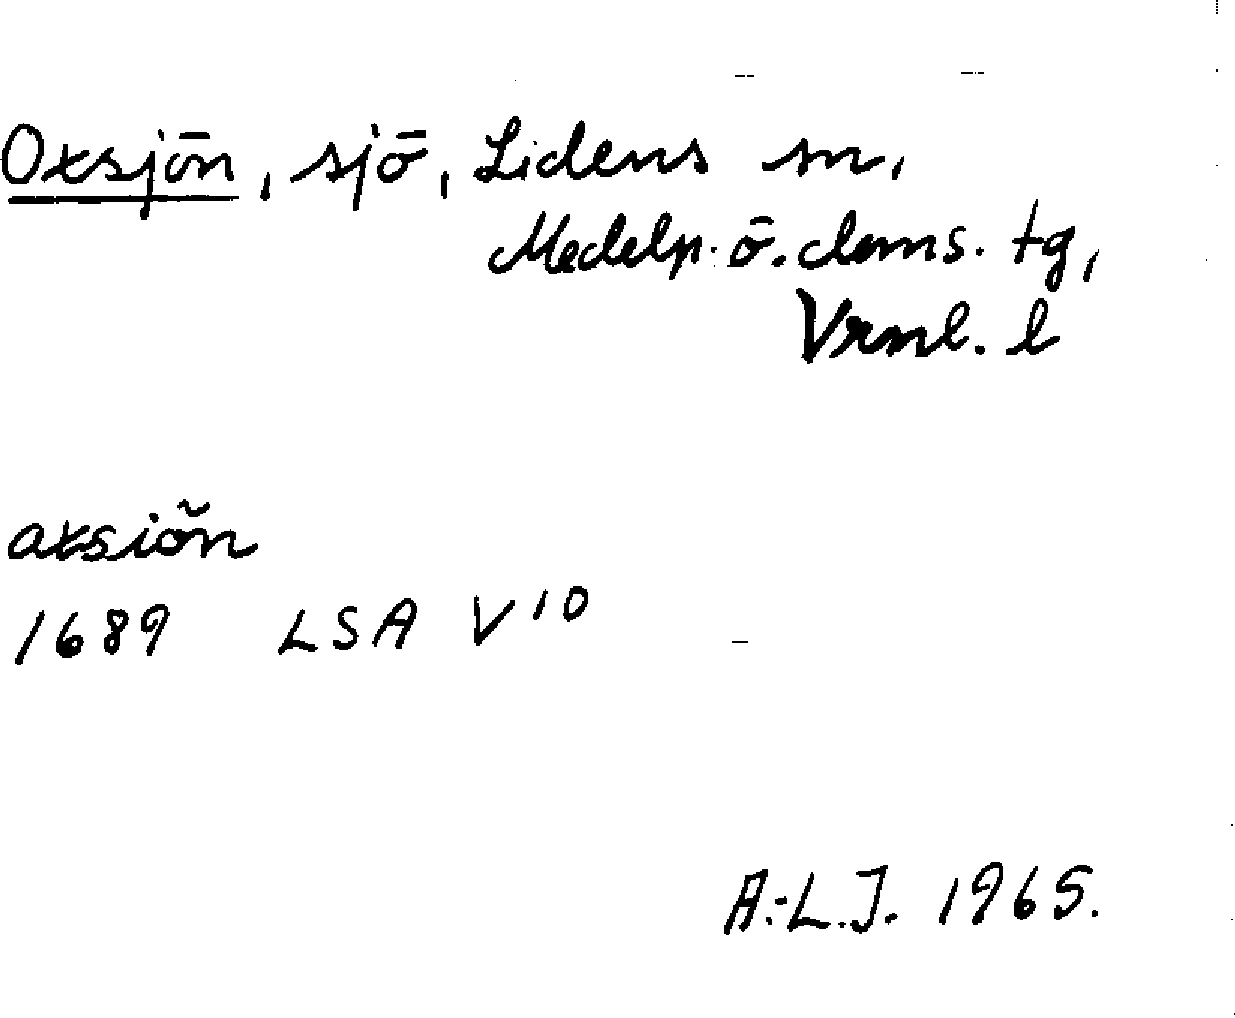 Oxsjön, sjö, Lidens sn,
Medelp. ö. doms. tg,
Vrnl. l
axsiön
1689 LSA V 10
A.-L.J. 1965.